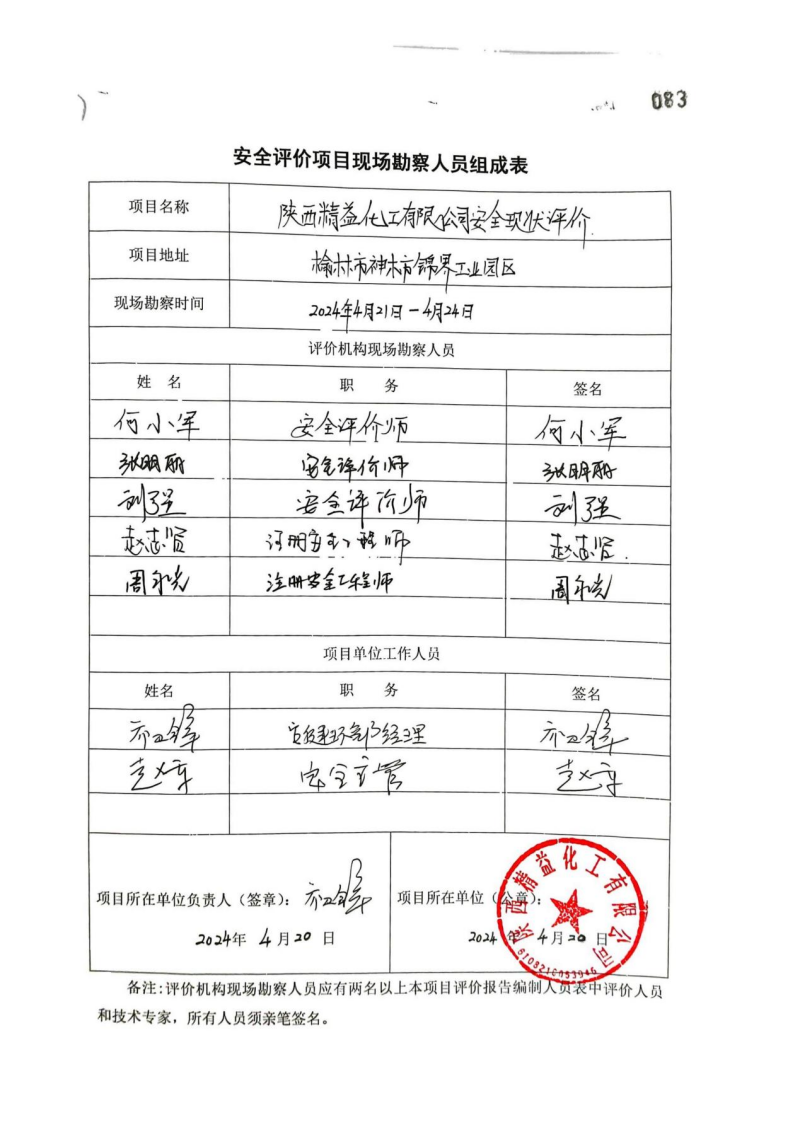 083
安全评价项目现场勘察人员组成表
项目名称 陕西精益化工有限公司安全现状评价
项目地址 榆林市神木市锦界工业园区
现场勘察时间 2024年4月21日-4月24日
评价机构现场勘察人员
姓 名 职 务 签名
何小军 安全评价师 何小军
张明丽 安全评价师 张明丽
刘强 安全评价师 刘强
赵志贤 注册安全工程师 赵志贤
周永光 注册安全工程师 周永光
项目单位工作人员
姓名 职 务 签名
经理
安全主管
项目所在单位负责人（签章）： 项目所在单位（公章）：
2024年 4月20日 2024年 4月20日
陕西精益化工有限公司
备注:评价机构现场勘察人员应有两名以上本项目评价报告编制人员表中评价人员
和技术专家，所有人员须亲笔签名。